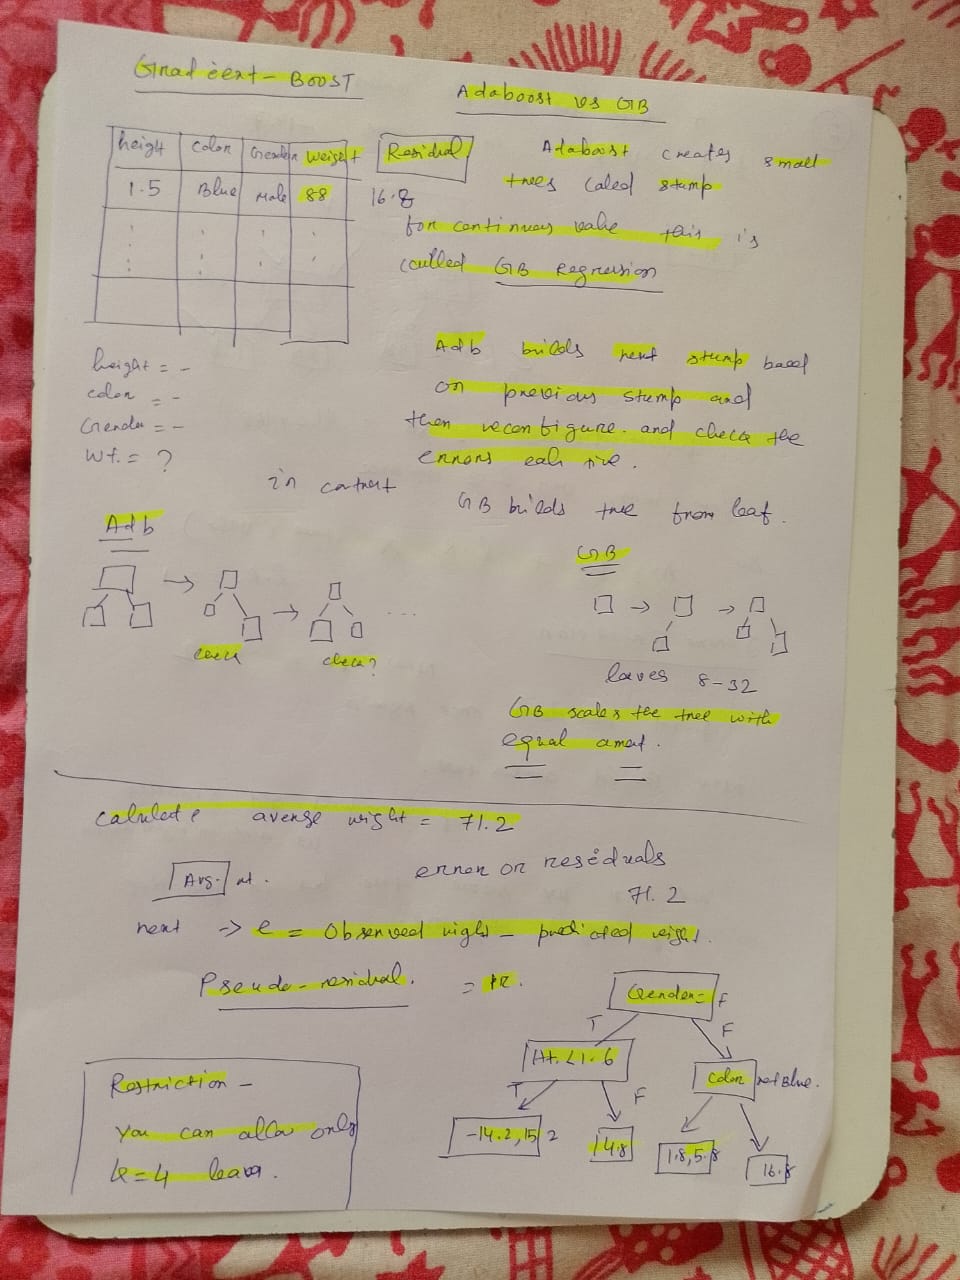 Gradient-BOOST
Adaboost vs GB
heigh Color Gender weight Residual
1.5 Blue Male 88 16.8
Adaboost creates small
trees called stump
for continuous value this is
called GB Regression
height = -
color = -
Gender = -
Wt. = ?
Adb builds next stump based
on previous stump and
then reconfigure. and check the
errors each
in contrast
GB builds tree from leaf.
Adb
check
check?
GB
leaves 8-32
GB scales the tree with
equal amout.
Calculate average wight = 71.2
Avg. wt.
error or residuals
71.2
next -> e = Observed wight - predicted weight.
Pseudo-residual. = r.
Gender = F
T F
Ht. <1.6
Color not Blue.
T F
-14.2, 15.2
4.8
1.8, 5.8
16.8
Restriction -
You can allow only
4 leaves.